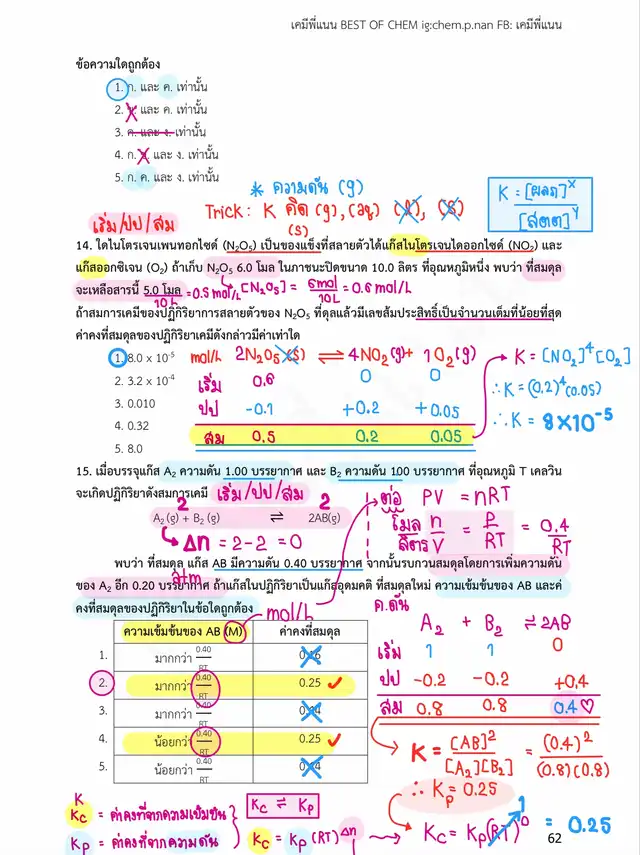 เคมีพี่แนน BEST OF CHEM ig:chem.p.nan FB: เคมีพี่แนน
ข้อความใดถูกต้อง
1. ก. และ ค. เท่านั้น
2. และ ค. เท่านั้น
3. ค. และ ง. เท่านั้น
4. ก. และ ง. เท่านั้น
5. ก. ค. และ ง. เท่านั้น
* ความดัน (g)
Trick: K คิด (g), (aq) (l), (s)
(s)
K = [ผลภ]ˣ
[สตต]ʸ
เริ่ม/ปป/สม
14. ไดไนโตรเจนเพนทอกไซด์ (N₂O₅) เป็นของแข็งที่สลายตัวได้แก๊สไนโตรเจนไดออกไซด์ (NO₂) และ
แก๊สออกซิเจน (O₂) ถ้าเก็บ N₂O₅ 6.0 โมล ในภาชนะปิดขนาด 10.0 ลิตร ที่อุณหภูมิหนึ่ง พบว่า ที่สมดุล
จะเหลือสารนี้ 5.0 โมล = 0.5 mol/L [N₂O₅] = 6mol = 0.6 mol/L
10L 10L
ถ้าสมการเคมีของปฏิกิริยาการสลายตัวของ N₂O₅ ที่ดุลแล้วมีเลขสัมประสิทธิ์เป็นจำนวนเต็มที่น้อยที่สุด
ค่าคงที่สมดุลของปฏิกิริยาเคมีดังกล่าวมีค่าเท่าใด
1. 8.0 x 10⁻⁵ mol/L 2N₂O₅(s) ⇌ 4NO₂(g) + 1O₂(g) K = [NO₂]⁴[O₂]
2. 3.2 x 10⁻⁴ เริ่ม 0.6 0 0 ∴ K = (0.2)⁴(0.05)
3. 0.010 ปป -0.1 +0.2 +0.05 ∴ K = 8×10⁻⁵
4. 0.32 สม 0.5 0.2 0.05
5. 8.0
15. เมื่อบรรจุแก๊ส A₂ ความดัน 1.00 บรรยากาศ และ B₂ ความดัน 100 บรรยากาศ ที่อุณหภูมิ T เคลวิน
จะเกิดปฏิกิริยาดังสมการเคมี เริ่ม/ปป/สม
2 2
A₂(g) + B₂(g) ⇌ 2AB(g)
Δn = 2-2 = 0
PV = nRT
โมล n = P = 0.4
ลิตร V RT RT
พบว่า ที่สมดุล แก๊ส AB มีความดัน 0.40 บรรยากาศ จากนั้นรบกวนสมดุลโดยการเพิ่มความดัน
ของ A₂ อีก 0.20 บรรยากาศ ถ้าแก๊สในปฏิกิริยาเป็นแก๊สอุดมคติ ที่สมดุลใหม่ ความเข้มข้นของ AB และค่า
atm
คงที่สมดุลของปฏิกิริยาในข้อใดถูกต้อง
mol/L
ค.ดัน
A₂ + B₂ ⇌ 2AB
เริ่ม 1 1 0
ปป -0.2 -0.2 +0.4
สม 0.8 0.8 0.4♡
ความเข้มข้นของ AB (M) ค่าคงที่สมดุล
1. มากกว่า 0.40/RT
2. มากกว่า 0.40/RT 0.25 ✓
3. มากกว่า 0.40/RT
4. น้อยกว่า 0.40/RT 0.25 ✓
5. น้อยกว่า 0.40/RT
K = [AB]² = (0.4)²
[A₂][B₂] (0.8)(0.8)
∴ Kp = 0.25
K
Kc = ค่าคงที่จากความเข้มข้น
Kp = ค่าคงที่จากความดัน
Kc ⇌ Kp
Kc = Kp(RT)^Δn
Kc = Kp(RT)⁰ = 0.25
1
62